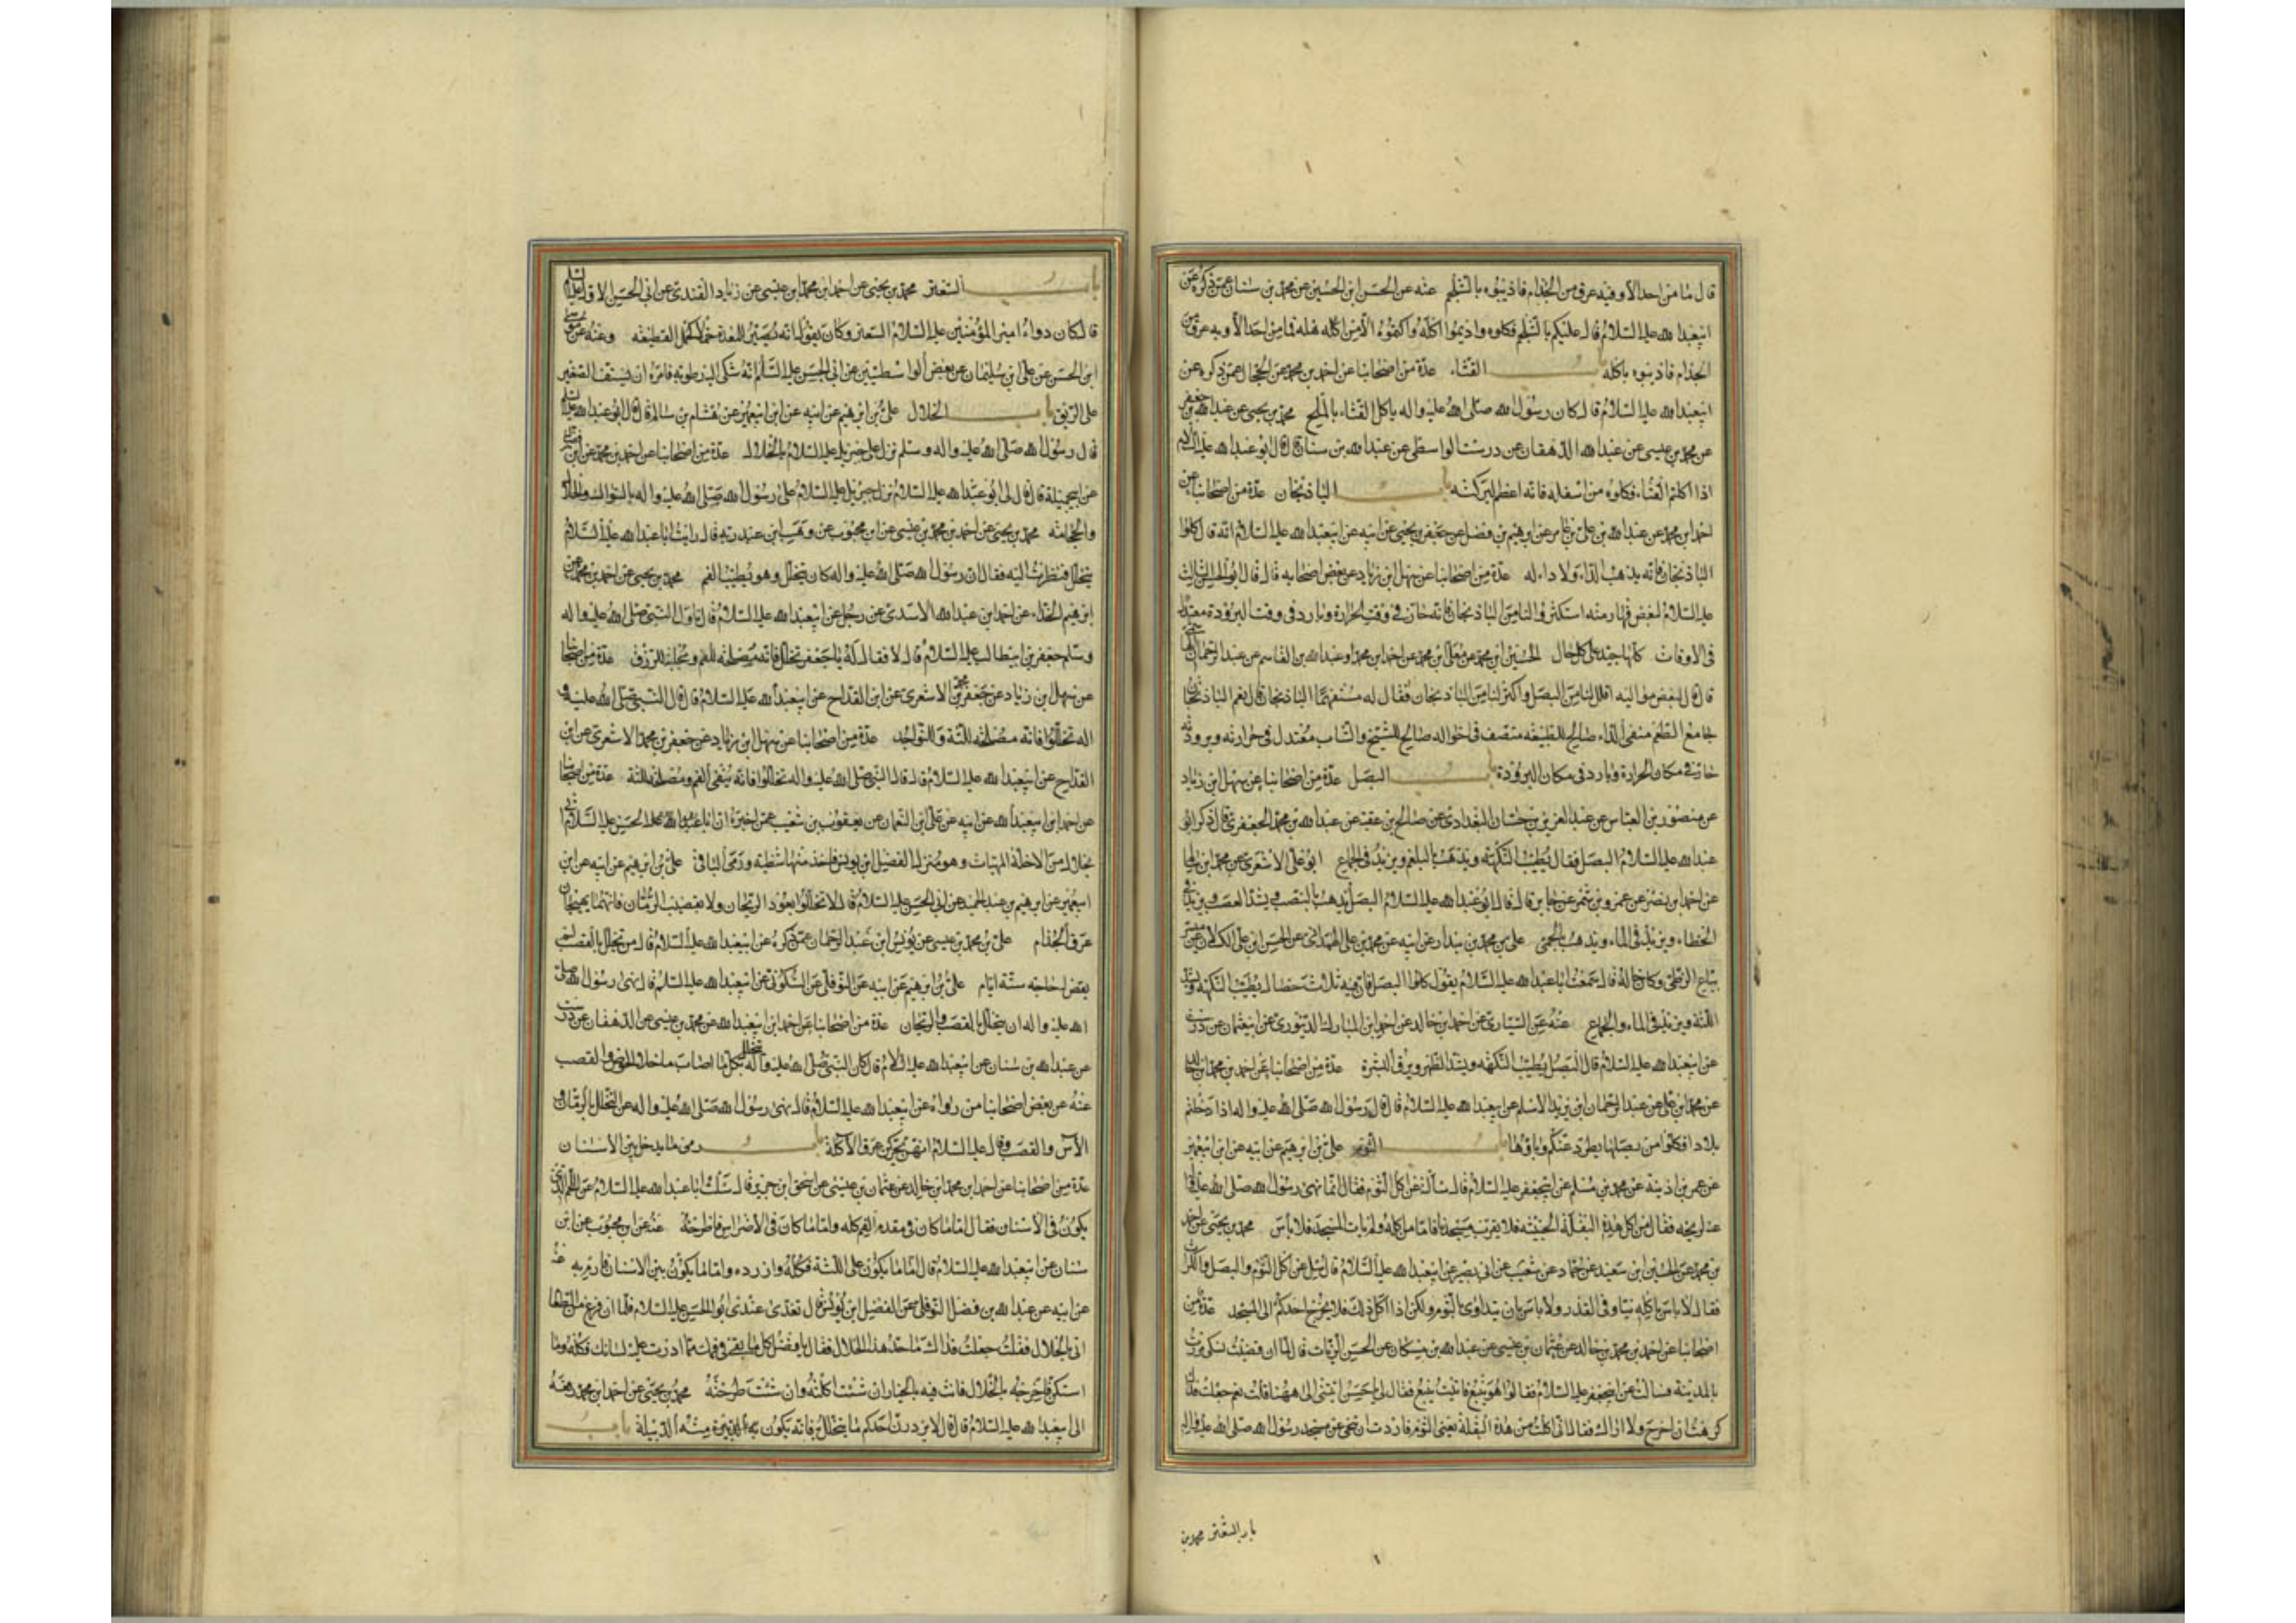 قال ما من احد الا وفيه عرق من الجذام فاذيبوه بالشلجم عنه عن الحسن ابن الحسين عن محمد بن سنان عمن ذكره عن
ابيعبدالله عليه السلام قال عليكم بالشلجم فكلوه واديموا اكله واكتموه الا من اهله فما من احد الا وبه عرق من
الجذام فاذيبوه باكله باب القثاء عدة من اصحابنا عن احمد بن محمد عن الحجال عمن ذكره عن
ابيعبدالله عليه السلام قال كان رسول الله صلى الله عليه واله ياكل القثاء بالملح محمد بن يحيى عن عبدالله بن جعفر
عن محمد بن عيسى عن عبدالله الدهقان عن درست الواسطى عن عبدالله بن سنان قال قال ابو عبدالله عليه السلام
اذا اكلتم القثاء فكلوه من اسفله فانه اعظم لبركته باب الباذنجان عدة من اصحابنا عن
احمد ابن محمد عن عبدالله بن على بن عامر عن ابرهيم بن فضل عن جعفر بن يحيى عن ابيه عن ابيعبدالله عليه السلام انه قال كلوا
الباذنجان فانه يذهب الداء ولا داء له عدة من اصحابنا عن سهل ابن زياد عن بعض اصحابه قال قال ابو الحسن الثالث
عليه السلام لبعض قهارمته استكثروا لنا من الباذنجان فانه حار فى وقت الحرارة وبارد فى وقت البرودة معتدل
فى الاوقات كلها جيد على كل حال الحسين ابن محمد عن معلى ابن محمد عن احمد ابن محمد او عبدالله بن القاسم عن عبد الرحمان الهاشمى
قال قال لبعض مواليه اقلل لنا من البصل واكثر لنا من الباذنجان فقال له مستفهما الباذنجان قال نعم الباذنجان
جامع الطعم منفى الداء صالح للطبيعة منصف فى احواله صالح للشيخ والشاب معتدل فى حرارته وبرودته
حار فى مكان الحرارة وبارد فى مكان البرودة باب البصل عدة من اصحابنا عن سهل ابن زياد
عن منصور بن العباس عن عبد العزيز بن حسان البغدادى عن صالح بن عقبة عن عبدالله بن محمد الجعفرى قال ذكر ابو
عبدالله عليه السلام البصل فقال يطيب النكهة ويذهب بالبلغم ويزيد فى الجماع ابو على الاشعرى عن محمد ابن سالم
عن احمد ابن نضر عن عمرو بن شمر عن جابر قال قال ابو عبدالله عليه السلام البصل يذهب بالنصب ويشد العصب ويزيد فى
الخطاء ويزيد فى الماء ويذهب بالحمى على بن محمد بن بندار عن ابيه عن محمد بن على الهمدانى عن الحسن ابن على الكسلان عن ميسر
بياع الزطى وكان خاله قال سمعت ابا عبدالله عليه السلام يقول كلوا البصل فان فيه ثلاث خصال يطيب النكهة ويشد
اللثة ويزيد فى الماء والجماع عنه عن السيارى عن احمد بن خالد عن احمد ابن المبارك الدينورى عن ابيعثمان عن درست
عن ابيعبدالله عليه السلام قال البصل يطيب النكهة ويشد الظهر ويرق البشرة عدة من اصحابنا عن احمد بن محمد ابن خالد
عن محمد ابن على عن عبد الرحمان ابن زيد ابن اسلم عن ابيعبدالله عليه السلام قال قال رسول الله صلى الله عليه واله اذا دخلتم
بلادا فكلوا من بصلها يطرد عنكم وباؤها باب الثوم على بن ابرهيم عن ابيه عن ابن ابيعمير
عن عمر بن اذينة عن محمد بن مسلم عن ابيجعفر عليه السلام قال سالته عن اكل الثوم فقال انما نهى رسول الله صلى الله عليه واله
عنه لريحه فقال من اكل هذه البقلة الخبيثة فلا يقرب مسجدنا فاما من اكله ولم يات المسجد فلا باس محمد بن يحيى عن احمد
بن محمد عن الحسين ابن سعيد عن حماد عن شعيب عن ابى بصير عن ابيعبدالله عليه السلام قال سئل عن اكل الثوم والبصل والكراث
فقال لا باس باكله نيا وفى القدر ولا باس بان يتداوى بالثوم ولكن اذا اكل ذلك فلا يخرج احدكم الى المسجد عدة من
اصحابنا عن احمد بن محمد بن خالد عن عثمان بن عيسى عن عبدالله بن مسكان عن الحسن الزيات قال لما ان قضيت نسكى مررت
بالمدينة فسالت عن ابيجعفر عليه السلام فقالوا هو بينبع فاتيت ينبع فقال لى يا حسن اتيتنى الى ههنا قلت نعم جعلت فداك
كرهت ان اخرج ولا اراك فقال انى اكلت من هذه البقلة يعنى الثوم فاردت ان اتنحى عن مسجد رسول الله صلى الله عليه واله
باب السعتر محمد بن
باب السعتر محمد بن يحيى عن احمد ابن محمد ابن عيسى عن زياد القندى عن ابى الحسن الاول عليه السلام
قال كان دواء امير المؤمنين عليه السلام السعتر وكان يقول انه يصير للمعدة خملا كخمل القطيفة وعنه عن موسى
ابن الحسن عن على ابن سليمان عن بعض الواسطيين عن ابى الحسن عليه السلام انه شكى اليه رطوبة فامره ان يستف الصعتر
على الريق باب الخلال على بن ابرهيم عن ابيه عن ابن ابيعمير عن هشام بن سالم قال قال ابو عبدالله عليه السلام
قال رسول الله صلى الله عليه واله وسلم نزل على جبريل عليه السلام بالخلال عدة من اصحابنا عن احمد بن محمد عن ابن فضال
عن ابيجميلة قال قال لى ابو عبدالله عليه السلام نزل جبريل عليه السلام على رسول الله صلى الله عليه واله بالسواك والخلال
والحجامة محمد بن يحيى عن احمد بن محمد بن عيسى عن ابن محبوب عن وهب ابن عبد ربه قال رايت ابا عبدالله عليه السلام
يتخلل فنظرت اليه فقال ان رسول الله صلى الله عليه واله كان يتخلل وهو يطيب الفم محمد بن يحيى عن احمد بن محمد عن
ابرهيم الحذاء عن احمد ابن عبدالله الاسدى عن رجل عن ابيعبدالله عليه السلام قال ناول النبى صلى الله عليه واله
وسلم جعفر بن ابيطالب عليه السلام خلالا فقال له يا جعفر تخلل فانه مصلحة للفم ومجلبة للرزق عدة من اصحابنا
عن سهل ابن زياد عن جعفر بن محمد الاشعرى عن ابن القداح عن ابيعبدالله عليه السلام قال قال النبى صلى الله عليه و
اله تخللوا فانه مصلحة للثة والنواجذ عدة من اصحابنا عن سهل ابن زياد عن جعفر بن محمد الاشعرى عن ابن
القداح عن ابيعبدالله عليه السلام قال قال النبى صلى الله عليه واله تخللوا فانه ينقى الفم ومصلحة للثة عدة من اصحابنا
عن احمد ابن ابيعبدالله عن ابيه عن على ابن النعمان عن يعقوب بن شعيب عمن اخبره ان ابا الحسن عليه السلام اتى
بخلال من الاخلة المهيات وهو فى منزل الفضل ابن يونس فاخذ منها شظية ورمى الباقى على بن ابرهيم عن ابيه عن ابن
ابيعمير عن ابرهيم بن عبد الحميد عن ابى الحسن عليه السلام قال لا تخللوا بعود الريحان ولا بقضيب الرمان فانهما يهيجان
عرق الجذام على بن محمد بن عيسى عن يونس ابن عبد الرحمان عمن ذكره عن ابيعبدالله عليه السلام قال من تخلل بالقصب لم
يقض له حاجة ستة ايام على بن ابرهيم عن ابيه عن النوفلى عن السكونى عن ابيعبدالله عليه السلام قال نهى رسول الله صلى
الله عليه واله ان يتخلل بالقصب والريحان عدة من اصحابنا عن احمد ابن ابيعبدالله عن محمد بن عيسى عن الدهقان عن درست
عن عبدالله بن سنان عن ابيعبدالله عليه السلام قال كان النبى صلى الله عليه واله يتخلل بكل ما اصاب ما خلا الخوص والقصب
عنه عن بعض اصحابنا من رواه عن ابيعبدالله عليه السلام قال نهى رسول الله صلى الله عليه واله عن التخلل بالرمان و
الآس والقصب وقال عليه السلام انهن يحركن عرق الآكلة باب رمى ما يدخل بين الاسنان
عدة من اصحابنا عن احمد ابن محمد ابن خالد عن عثمان بن عيسى عن اسحق ابن جرير قال سئلت ابا عبدالله عليه السلام عن اللحم الذى
يكون فى الاسنان فقال اما ما كان فى مقدم الفم كله واما ما كان فى الاضراس فاطرحه عنه عن ابن محبوب عن ابن
سنان عن ابيعبدالله عليه السلام قال اما ما يكون على اللثة فكله وازدرده واما ما يكون بين الاسنان فارم به عنه
عن ابيه عن عبدالله بن فضل النوفلى عن الفضيل ابن يونس قال تغدى عندى ابو الحسن عليه السلام فلما ان فرغ من الطعام
اتى بالخلال فقلت جعلت فداك ما حد هذا الخلال فقال يا فضل كل ما بقى فى فمك مما ادرت عليه لسانك فكله وما
استكن فاخرجه بالخلال فانت فيه بالخيار ان شئت اكلته وان شئت طرحته محمد بن يحيى عن احمد ابن محمد رفعه
الى ابيعبدالله عليه السلام قال قال لا يزدردن احدكم ما يتخلل به فانه يكون منه الدبيلة باب